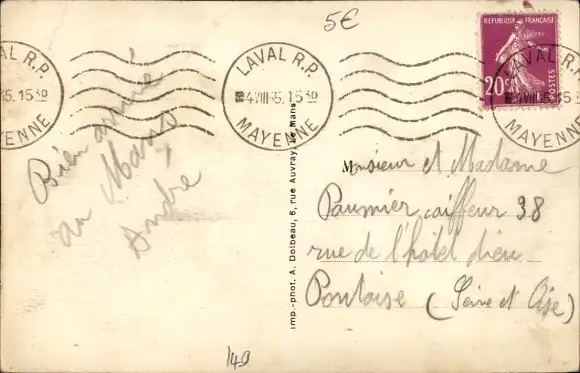 5€
LAVAL R.P.
4 VIII 35. 15 30
MAYENNE
LAVAL R.P.
35. 15 30
MAYENNE
RÉPUBLIQUE FRANÇAISE
20c
POSTES
Bien arrivé
au Mans
André
imp.-phot. A. Dolbeau, 6, rue Auvray, Le Mans
Monsieur et Madame
Paumier coiffeur 38
rue de l'hôtel dieu
Pontoise (Seine et Oise)
149